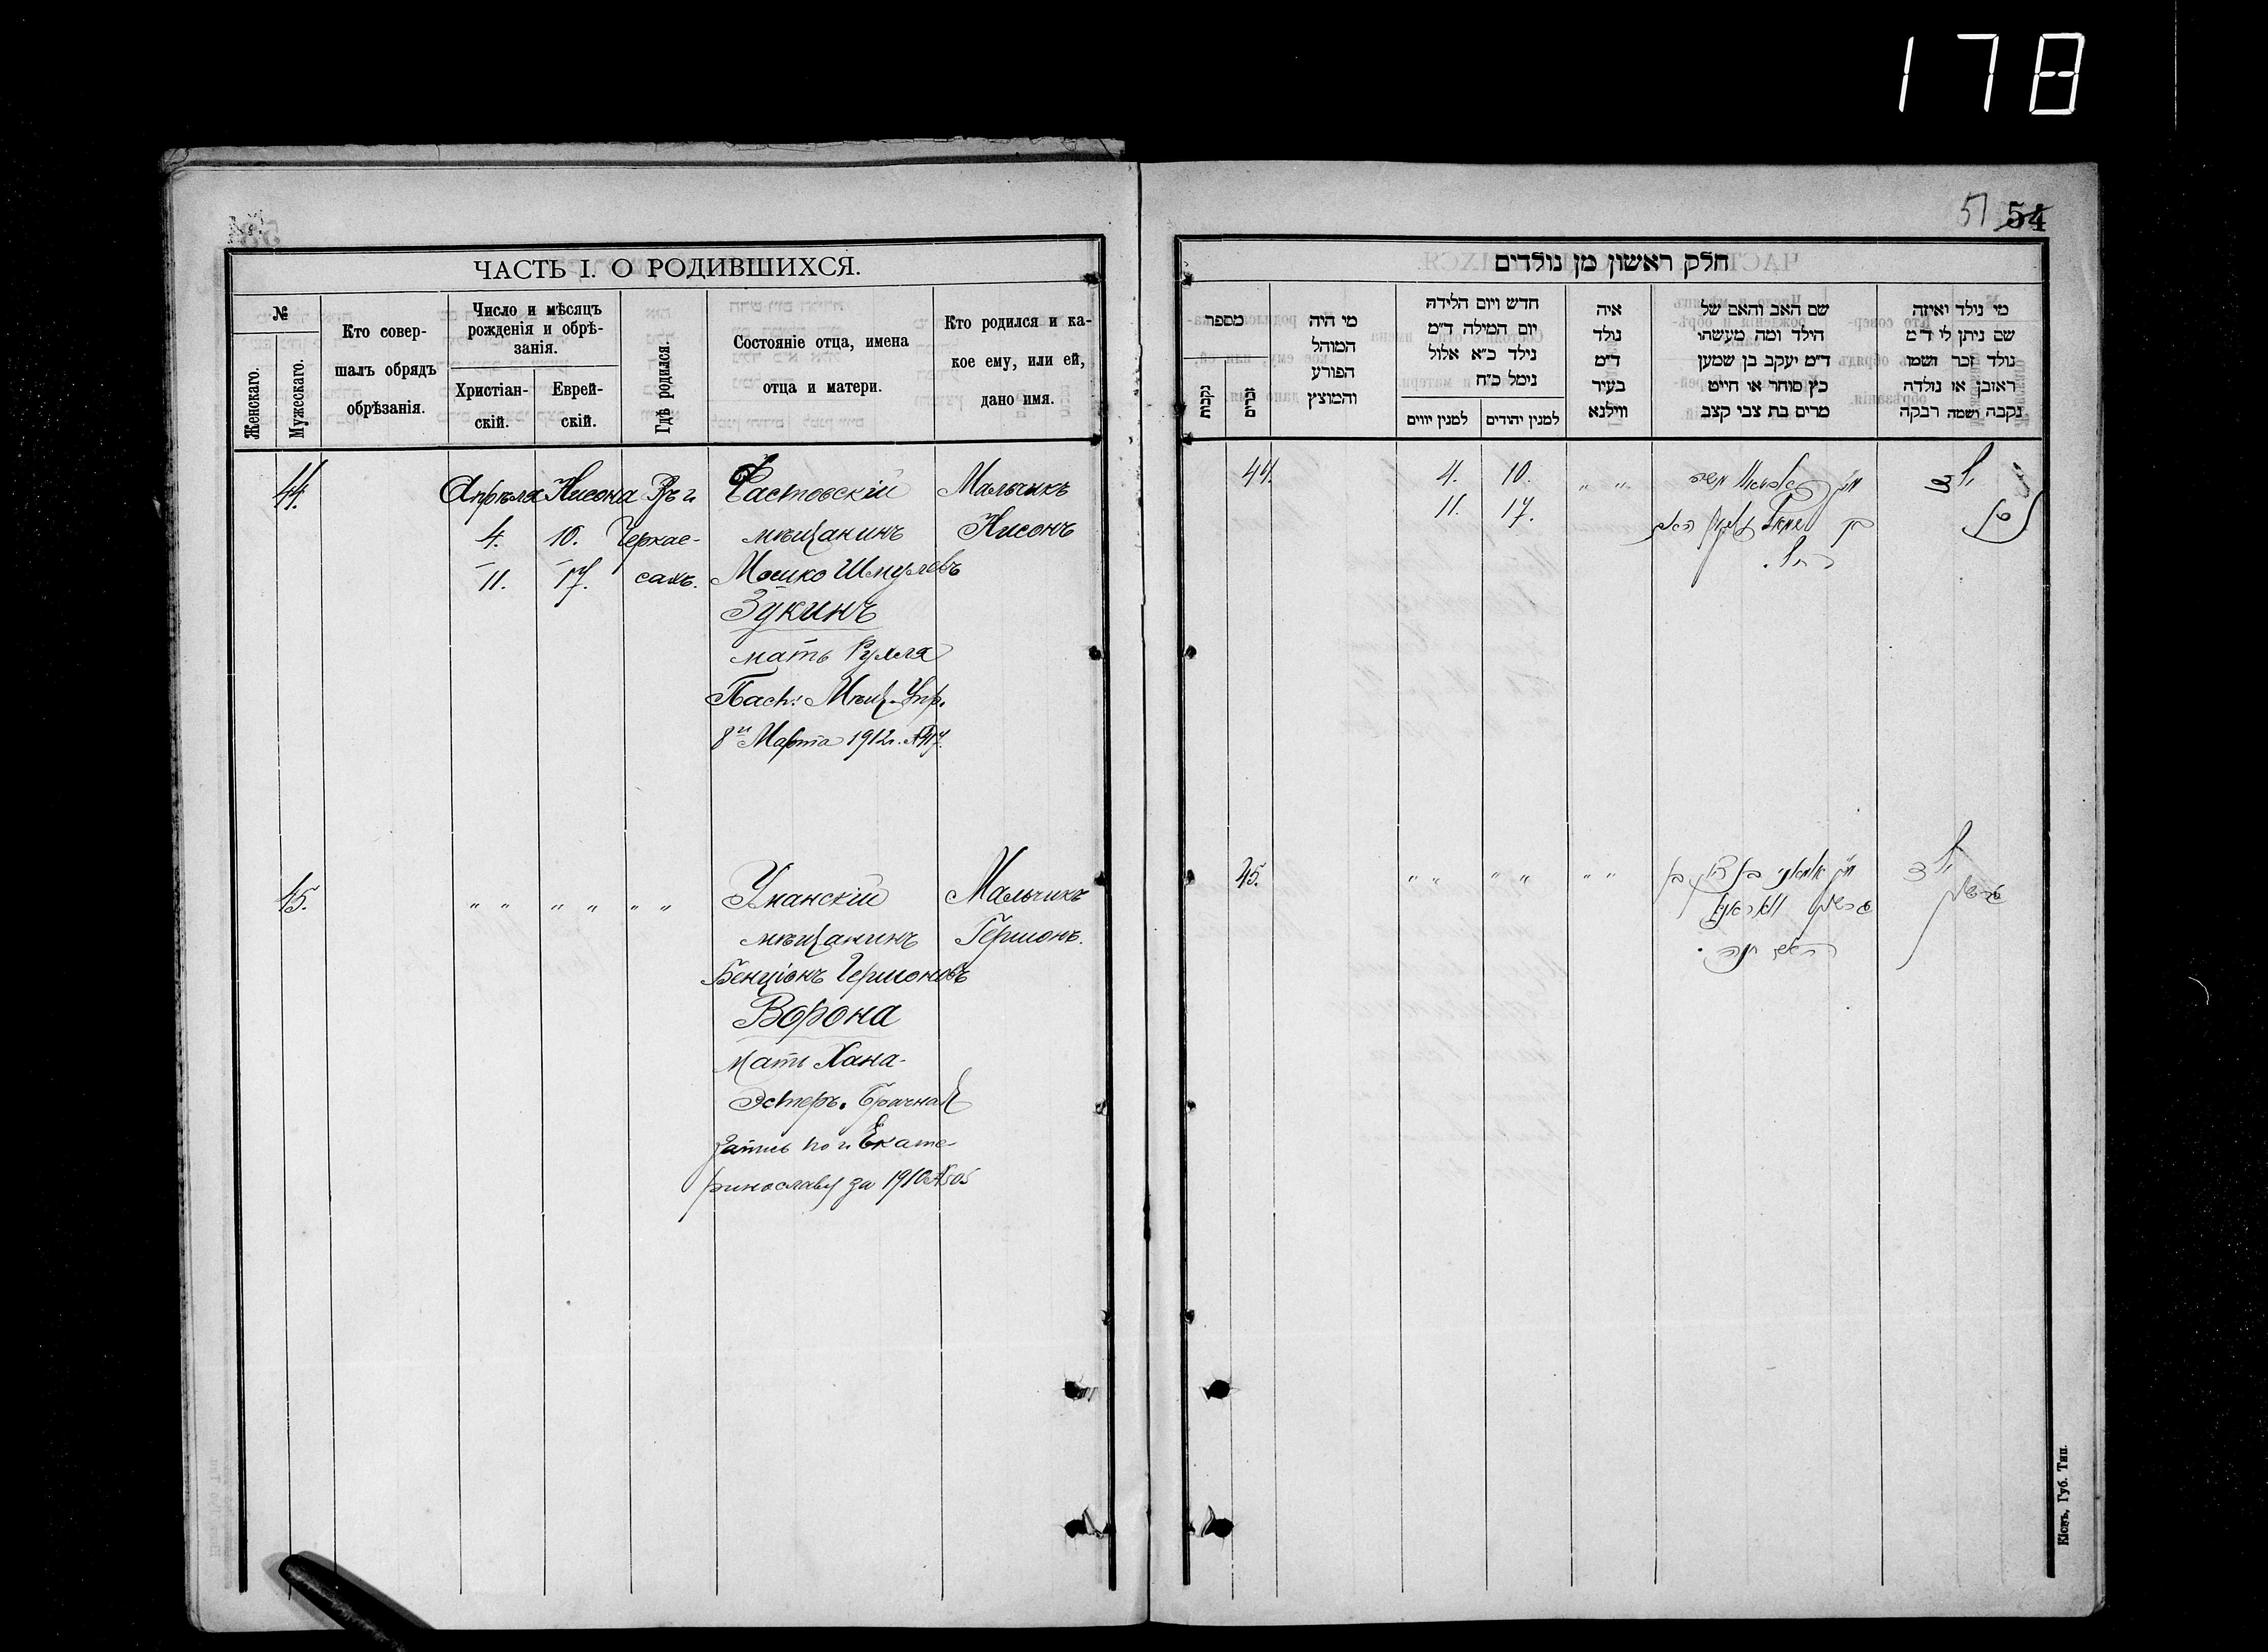 178
51 54
ЧАСТЬ I. О РОДИВШИХСЯ.
№
Женскаго.
Мужескаго.
Кто совер-
шалъ обрядъ
обрѣзанія.
Число и мѣсяцъ
рожденія и обрѣ-
занія.
Христіан-
скій.
Еврей-
скій.
Гдѣ родился.
Состояніе отца, имена
отца и матери.
Кто родился и ка-
кое ему, или ей,
дано имя.
44. Апрѣля Нисона Въ г Фастовскій Мальчикъ
4. 10. Черкас- мѣщанинъ Нисонъ
11. 17. сахъ. Мошко Шмулевъ
Зукинъ
мать Рухля
Пасп: Мѣщ. Упр.
8го Марта 1912г.
45. " " " " " " Уманскій Мальчикъ
мѣщанинъ Гершонъ.
Бенціонъ Гершоновъ
Ворона
Мать Хана-
Эстеръ. Брачная
запись по г Екате-
ринославу за 1910
חלק ראשון מן נולדים
מספר
נקבות
זכרים
מי היה
המוהל
הפורע
והמוצץ
חדש ויום הלידה
יום המילה ד״מ
נילד כ״א אלול
נימל כ״ח
למנין יווים
למנין יהודים
איה
נולד
ד״מ
בעיר
ווילנא
שם האב והאם של
הילד ומה מעשהו
ד״מ יעקב בן שמען
כץ סוחר או חייט
מרים בת צבי קצב
מי נילד ואיזה
שם ניתן לו ד״מ
נולד זכר ושמו
ראובן או נולדה
נקבה ושמה רבקה
44. 4. 10. " "
11. 17.
רחל.
ילד
ניסן
45. " " " " " "
ילד
גרשון
Кіевъ, Губ. Тип.